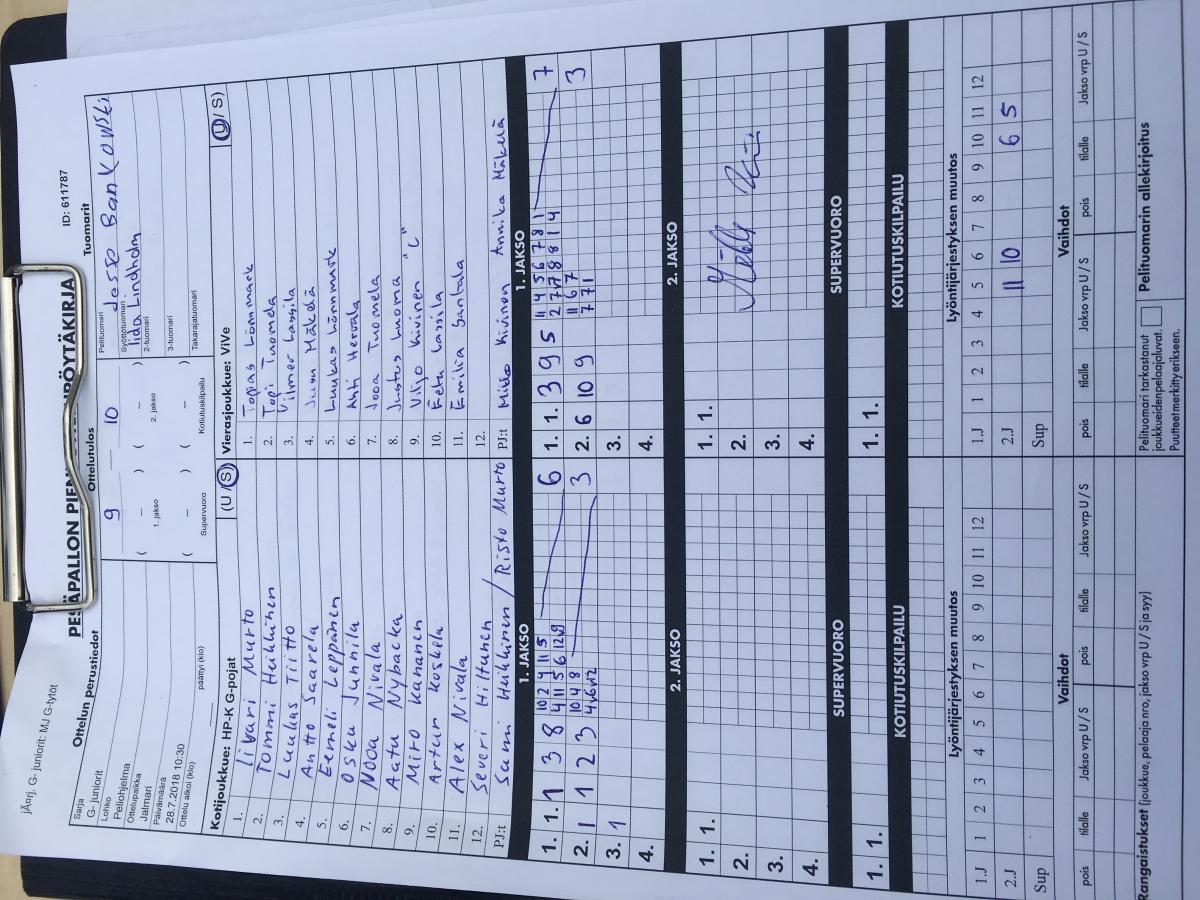 jÃ¤rj. G- juniorit: MJ G-tytöt
ID: 611787
Ottelun perustiedot
Sarja
G- juniorit
Lohko
Peliohjelma
Ottelupaikka
Jalmari
Päivämäärä
28.7.2018 10:30
Ottelu alkoi (klo)
päättyi (klo)
Ottelutulos
9 – 10
( – ) ( – )
1. jakso 2. jakso
( – ) ( – )
Supervuoro Kotiutuskilpailu
Tuomarit
Pelituomari
Syöttötuomari
Iida Lindholm
2-tuomari
3-tuomari
Takarajatuomari
Kotijoukkue: HP-K G-pojat (U / S)
1. Iivari Murto
2. Tommi Heikkinen
3. Luukas Tiitto
4. Antto Saarela
5. Eemeli Leppänen
6. Osku Junnila
7. Nooa Nivala
8. Aatu Nyback
9. Miro Kananen
10. Artur Koskela
11. Alex Nivala
12. Severi Hiltunen
PJ:t Sami Heikkinen / Risto Murto
Vierasjoukkue: ViVe (U / S)
1. Topias Lönnmark
2. Topi Tuomela
3. Viimer Lassila
4. Jusu Mäkelä
5. Luukas Lönnmark
6. Ahti Hervala
7. Jooa Tuomela
8. Justus Luoma
9. Viljo Kivinen "L"
10. Eetu Lassila
11. Emilia Santala
12.
PJ:t Mikko Kivinen Annika Mäkelä
1. JAKSO
1. 1. 1 3 8 10 2 4 11 5 6
2. 1 2 3 10 4 8 3
3. 1
4.
1. JAKSO
1. 1. 3 9 5 11 4 5 6 7 8 1 7
2 7 7 8 8 1 4
2. 6 10 9 11 6 7 3
7 7 1
3.
4.
2. JAKSO
1. 1.
2.
3.
4.
2. JAKSO
1. 1.
2.
3.
4.
SUPERVUORO
1. 1.
SUPERVUORO
1. 1.
KOTIUTUSKILPAILU
KOTIUTUSKILPAILU
Lyöntijärjestyksen muutos
1.J 1 2 3 4 5 6 7 8 9 10 11 12
2.J
Sup
Lyöntijärjestyksen muutos
1.J 1 2 3 4 5 6 7 8 9 10 11 12
2.J 11 10 6 5
Sup
Vaihdot
pois tilalle Jakso vrp U / S pois tilalle Jakso vrp U / S
Vaihdot
pois tilalle Jakso vrp U / S pois tilalle Jakso vrp U / S
Rangaistukset (joukkue, pelaaja nro, jakso vrp U / S ja syy)
Pelituomari tarkastanut
joukkueidenpelaajaluvat.
Puutteetmerkittyerikseen.
Pelituomarin allekirjoitus